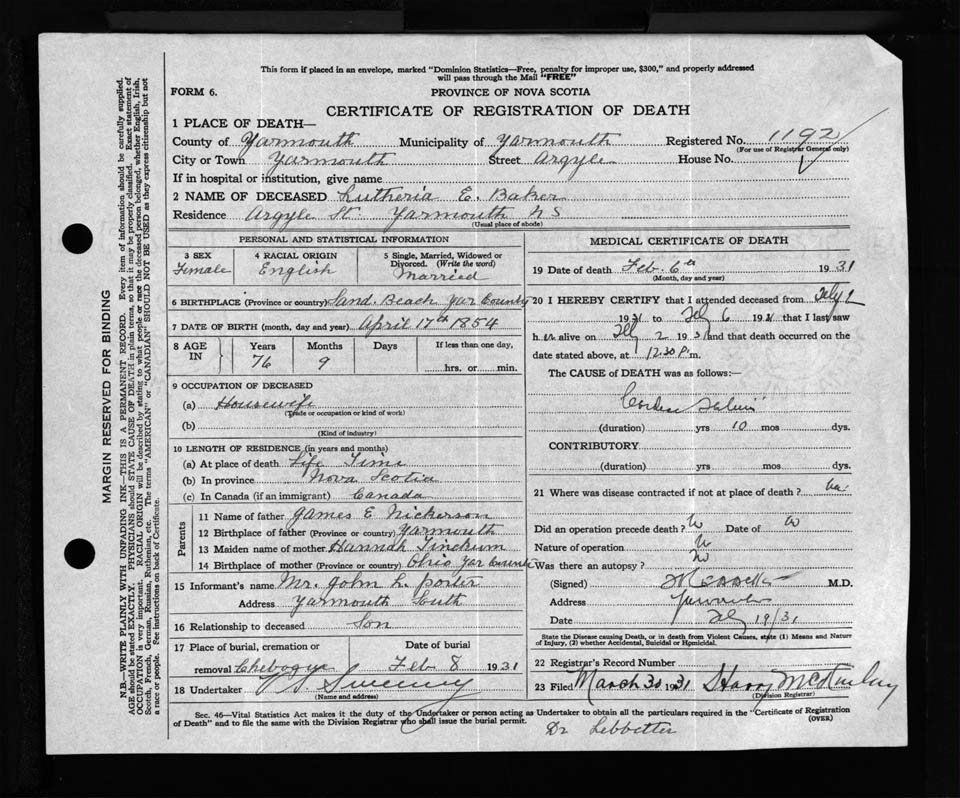 This form if placed in an envelope, marked "Dominion Statistics—Free, penalty for improper use, $300," and properly addressed
will pass through the Mail "FREE"
FORM 6.
PROVINCE OF NOVA SCOTIA
CERTIFICATE OF REGISTRATION OF DEATH
1 PLACE OF DEATH—
County of Yarmouth Municipality of Yarmouth Registered No. 1192
(For use of Registrar General only)
City or Town Yarmouth Street Argyle House No.
If in hospital or institution, give name
2 NAME OF DECEASED Lutheria E. Baker
Residence Argyle St. Yarmouth N S
(Usual place of abode)
MARGIN RESERVED FOR BINDING
N.B.—WRITE PLAINLY WITH UNFADING INK—THIS IS A PERMANENT RECORD. Every item of information should be carefully supplied.
AGE should be stated EXACTLY. PHYSICIANS should STATE CAUSE OF DEATH in plain terms, so that it may be properly classified. Exact statement of
OCCUPATION is very important. RACIAL ORIGIN will be described by stating to what people or race the deceased person belonged, whether English, Irish,
Scotch, French, German, Russian, Ruthenian, etc. The terms "AMERICAN" or "CANADIAN" SHOULD NOT BE USED as they express citizenship but not
a race or people. See instructions on back of Certificate.
PERSONAL AND STATISTICAL INFORMATION
3 SEX
Female
4 RACIAL ORIGIN
English
5 Single, Married, Widowed or
Divorced. (Write the word)
Married
6 BIRTHPLACE (Province or country) Sand Beach Yar County
7 DATE OF BIRTH (month, day and year) April 17th 1854
8 AGE IN
Years Months Days If less than one day,
76 9 hrs. or min.
9 OCCUPATION OF DECEASED
(a) Housewife
(Trade or occupation or kind of work)
(b)
(Kind of industry)
10 LENGTH OF RESIDENCE (in years and months)
(a) At place of death Life Time
(b) In province Nova Scotia
(c) In Canada (if an immigrant) Canada
Parents
11 Name of father James E Nickerson
12 Birthplace of father (Province or country) Yarmouth
13 Maiden name of mother Hannah Tinckum
14 Birthplace of mother (Province or country) Ohio Yar County
15 Informant's name Mr. John L. Porter
Address Yarmouth South
16 Relationship to deceased Son
17 Place of burial, cremation or Date of burial
removal Chebogue Feb 8 1931
18 Undertaker Sweeny
(Name and address)
MEDICAL CERTIFICATE OF DEATH
19 Date of death Feb. 6th 1931
(Month, day and year)
20 I HEREBY CERTIFY that I attended deceased from Feby 2
1931 to Feby 6 1931 that I last saw
h er alive on Feby 2 1931 and that death occurred on the
date stated above, at 12.30 P. m.
The CAUSE of DEATH was as follows:—
(duration) yrs 10 mos dys.
CONTRIBUTORY
(duration) yrs mos dys.
21 Where was disease contracted if not at place of death?
Did an operation precede death? Date of
Nature of operation
Was there an autopsy? No
(Signed) M.D.
Address Yarmouth
Date Feby 19/31
State the Disease causing Death, or in death from Violent Causes, state (1) Means and Nature
of Injury, (2) whether Accidental, Suicidal or Homicidal.
22 Registrar's Record Number
23 Filed March 30 1931 Harry McKinlay
(Division Registrar)
Sec. 46—Vital Statistics Act makes it the duty of the Undertaker or person acting as Undertaker to obtain all the particulars required in the "Certificate of Registration
of Death" and to file the same with the Division Registrar who shall issue the burial permit. (OVER)
Dr Lebbetter